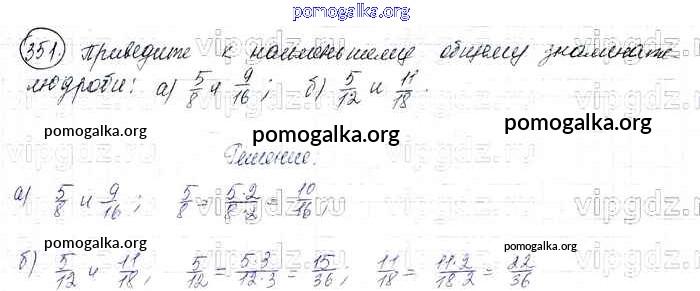 pomogalka.org
351. Приведите к наименьшему общему знаменате-
лю дроби: а) 5/8 и 9/16; б) 5/12 и 11/18.
pomogalka.org pomogalka.org pomogalka.org
Решение:
vipgdz.ru vipgdz.ru vipgdz.ru
а) 5/8 и 9/16; 5/8 = 5·2/8·2 = 10/16;
pomogalka.org pomogalka.org pomogalka.org
б) 5/12 и 11/18; 5/12 = 5·3/12·3 = 15/36; 11/18 = 11·2/18·2 = 22/36